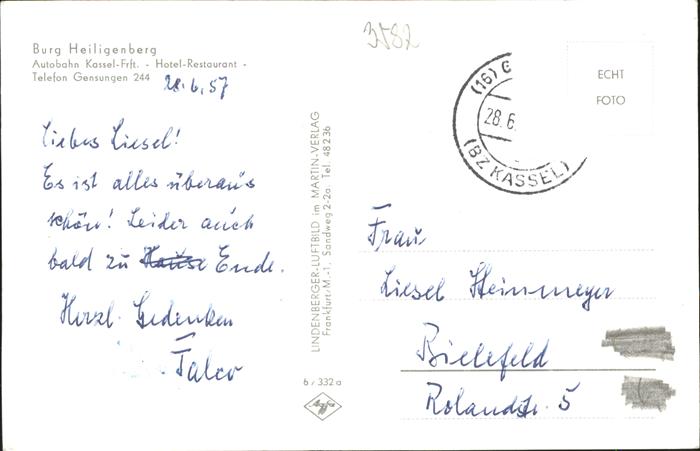 Burg Heiligenberg
Autobahn Kassel-Frft. - Hotel-Restaurant -
Telefon Gensungen 244
28.6.57
Liebes Liesel!
Es ist alles überaus
schön! Leider auch
bald zu Hause Ende.
Herzl. Gedenken
Falco
LINDENBERGER-LUFTBILD im MARTIN-VERLAG
Frankfurt/M.-1, Sandweg 2-2a. Tel. 48236
6/332a
Agfa
3582
(16) G
28.6.
(BZ KASSEL)
ECHT
FOTO
Frau
Liesel Steinmeyer
Bielefeld
Rolandstr. 5